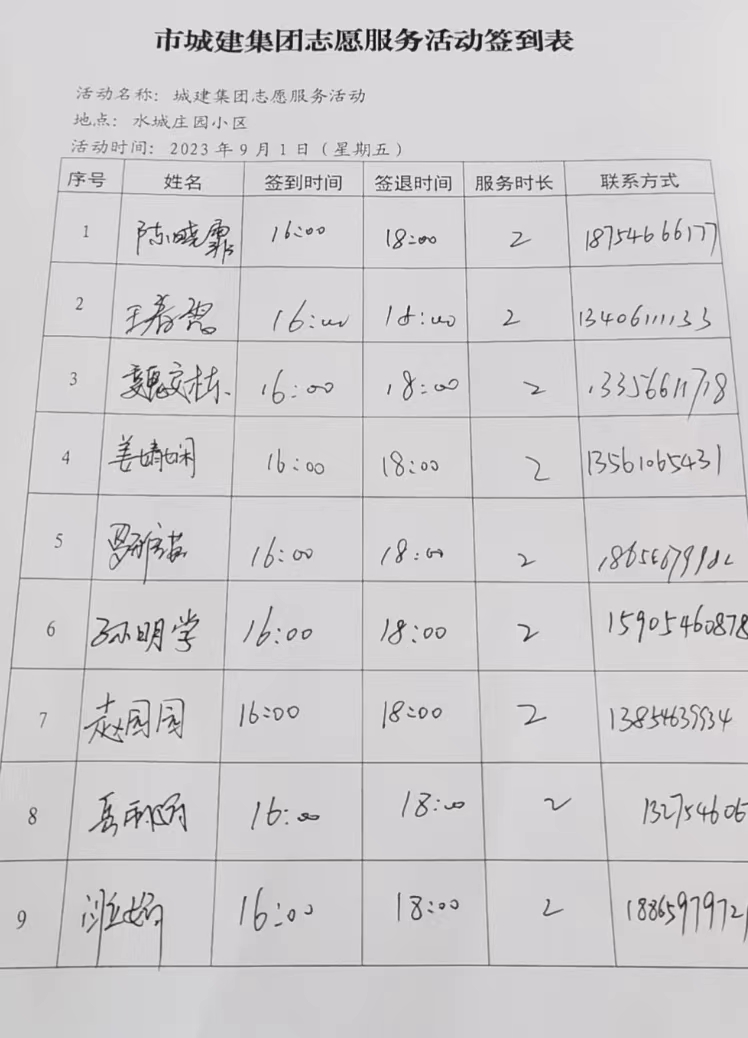 市城建集团志愿服务活动签到表
活动名称：城建集团志愿服务活动
地点：水城庄园小区
活动时间：2023年9月1日（星期五）
序号 姓名 签到时间 签退时间 服务时长 联系方式
1 陈晓霏 16:00 18:00 2 18754666177
2 王春 16:00 18:00 2 13406111133
3 魏文栋 16:00 18:00 2 13356611718
4 姜婧娴 16:00 18:00 2 13561065431
5 16:00 18:00 2
6 孙明学 16:00 18:00 2 15905460878
7 赵园园 16:00 18:00 2 13854639934
8 岳 16:00 18:00 2 132754606
9 16:00 18:00 2 1886597972